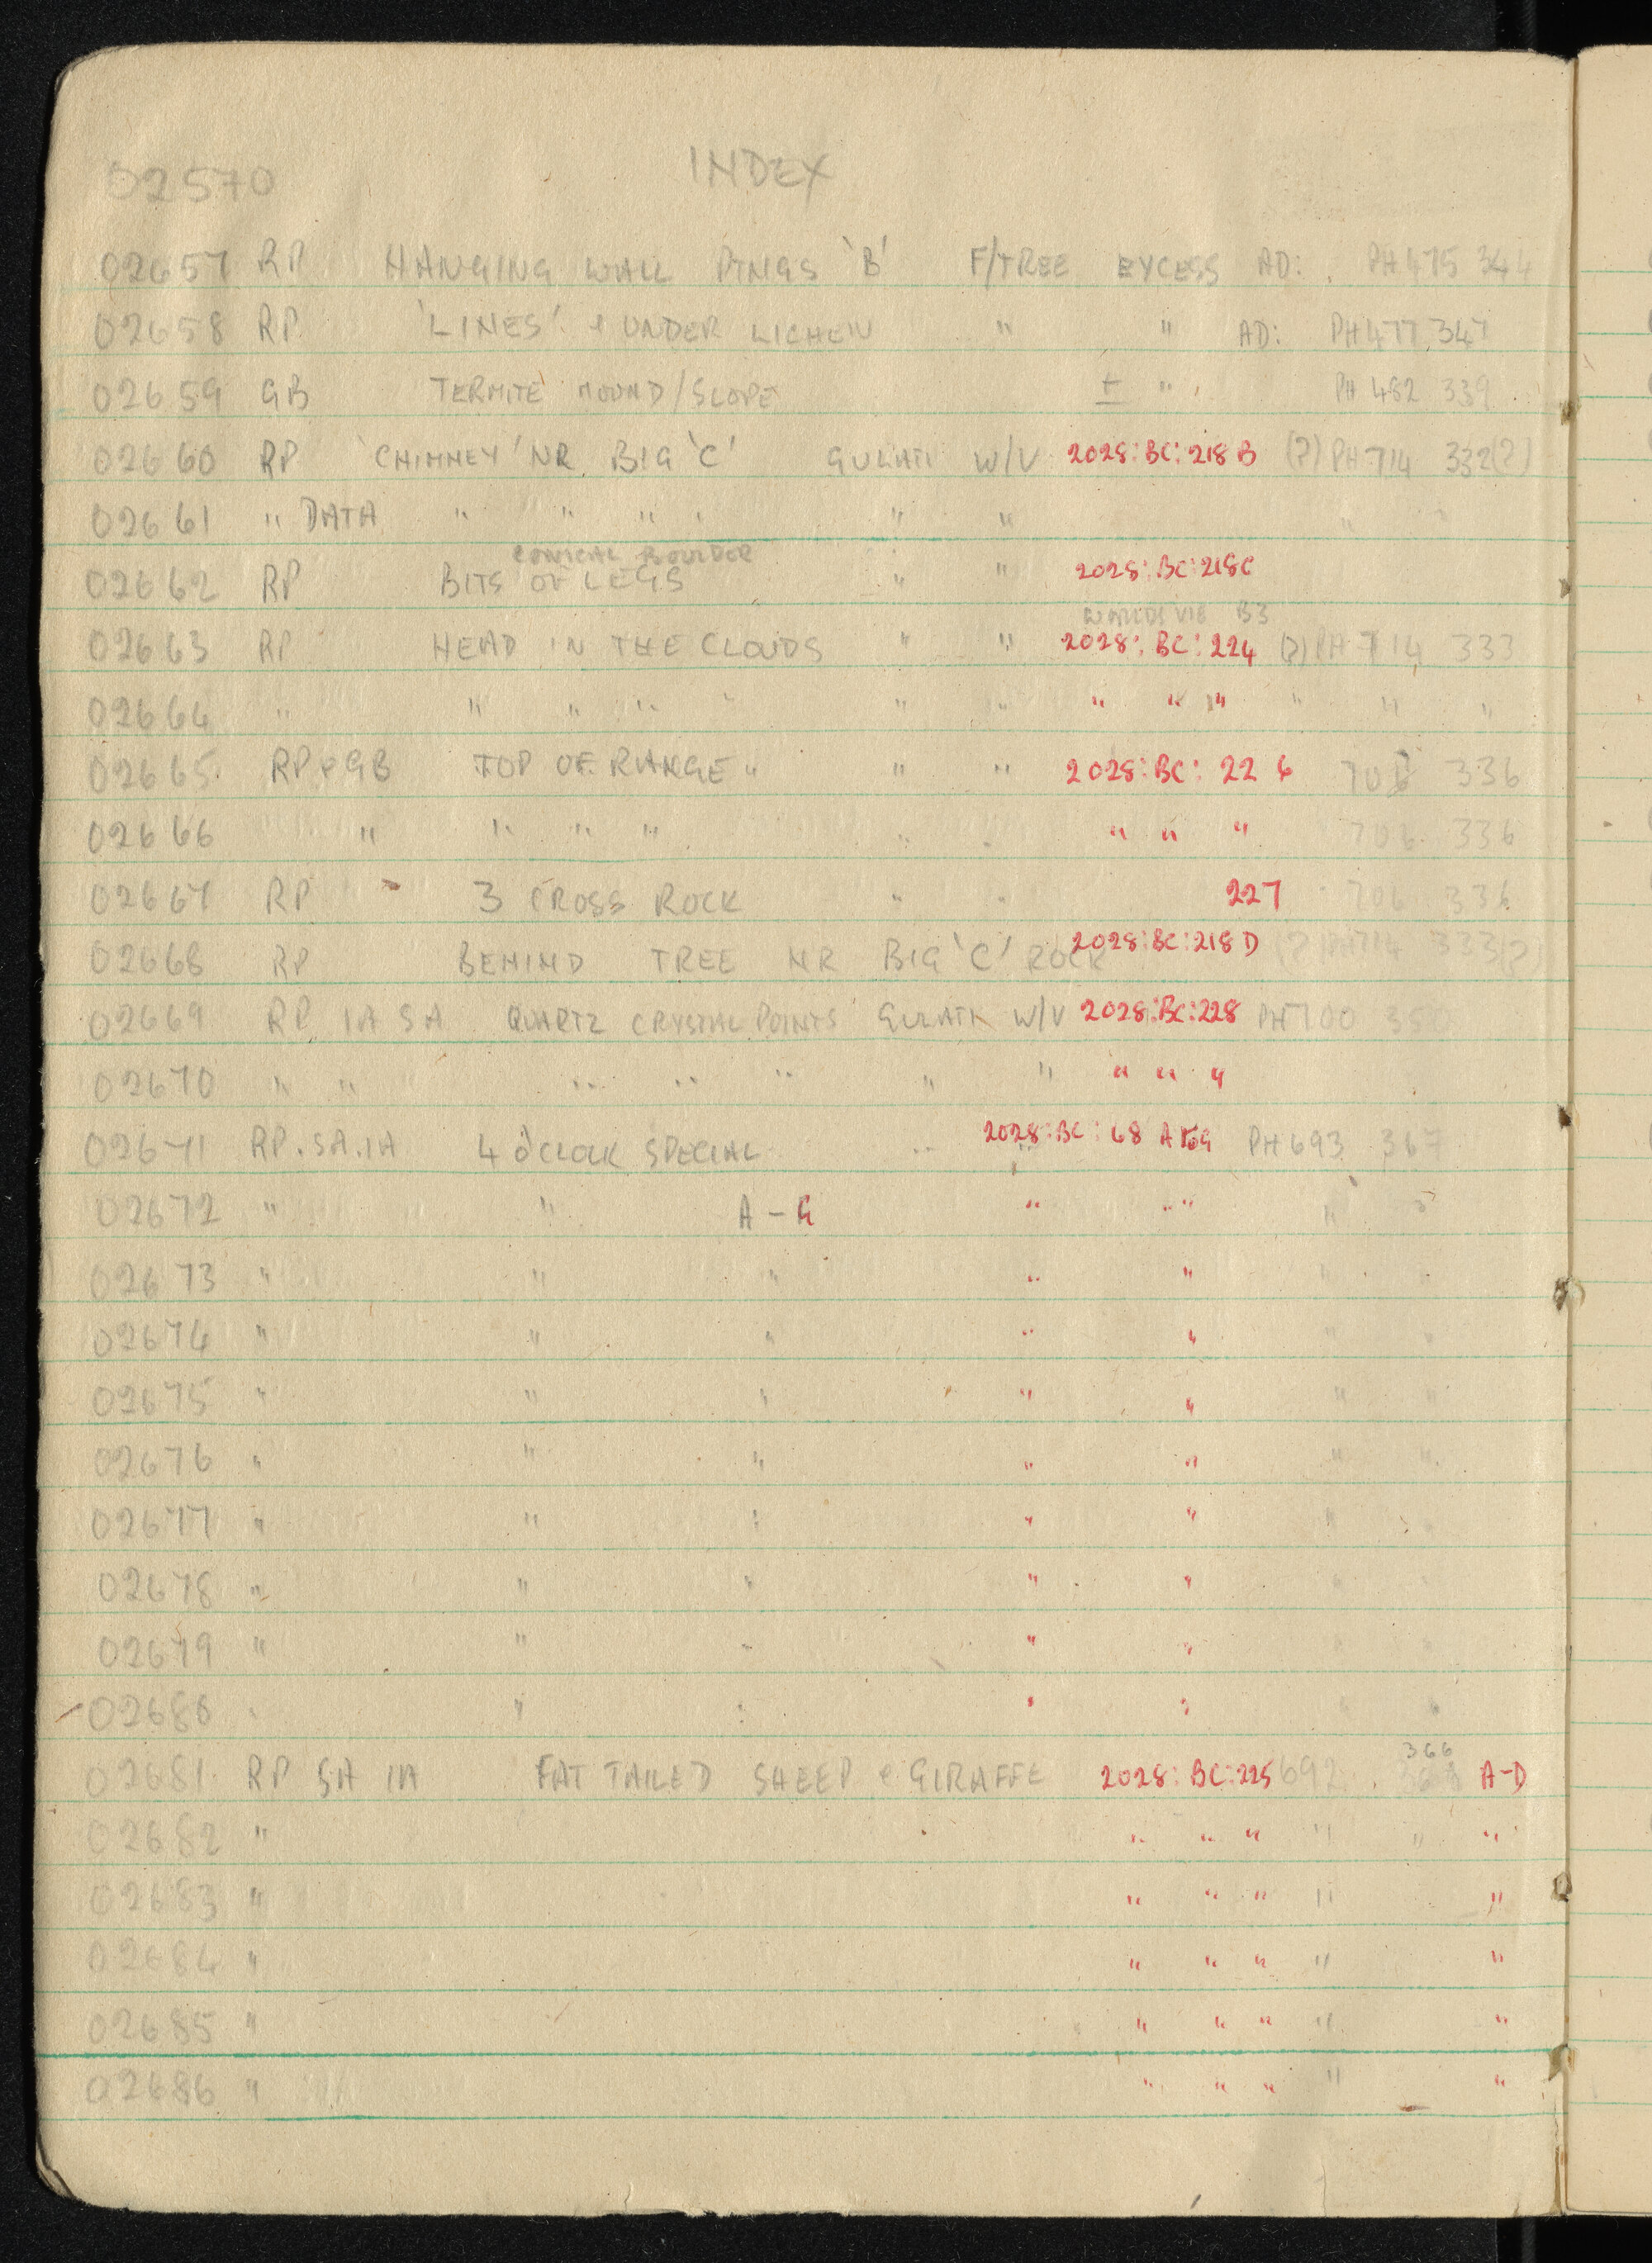 02570 INDEX
02657 RP HANGING WALL PTNGS 'B' F/TREE EXCESS AD: PH 475 344
02658 RP 'LINES' & UNDER LICHEN " " AD: PH 477 347
02659 GB TERMITE MOUND/SLOPE ± " PH 482 339
02660 RP 'CHIMNEY' NR BIG 'C' GULATI W/V 2028:BC:218B (?) PH 714 332(?)
02661 " DATA " " " " " " "
CONICAL BOULDER
02662 RP BITS OF LEGS " " 2028:BC:218C
WORLDS VIE B3
02663 RP HEAD IN THE CLOUDS " " 2028:BC:224 (?) PH 714 333
02664 " " " " " " " " " " " " "
02665 RP & GB TOP OF RANGE " " " 2028:BC:226 706 336
02666 " " " " " " " " " 706 336
02667 RP 3 CROSS ROCK " " 227 706 336
02668 RP BEHIND TREE NR BIG 'C' ROCK 2028:BC:218D (? PH 714 333(?)
02669 RP IA SA QUARTZ CRYSTAL POINTS GULATI W/V 2028:BC:228 PH 700
02670 " " " " " " " " " "
02671 RP.SA.IA 4 O'CLOCK SPECIAL " 2028:BC:68 A to G PH 693 367
02672 " " A-G " " " "
02673 " " " " " " "
02674 " " " " " " "
02675 " " " " " " "
02676 " " " " " " "
02677 " " " " " " "
02678 " " " " " " "
02679 " " " " " " "
02680 " " " " " " "
366
02681 RP SA IA FAT TAILED SHEEP & GIRAFFE 2028:BC:225 692 A-D
02682 " " " " " " "
02683 " " " " " "
02684 " " " " " "
02685 " " " " " "
02686 " " " " " "